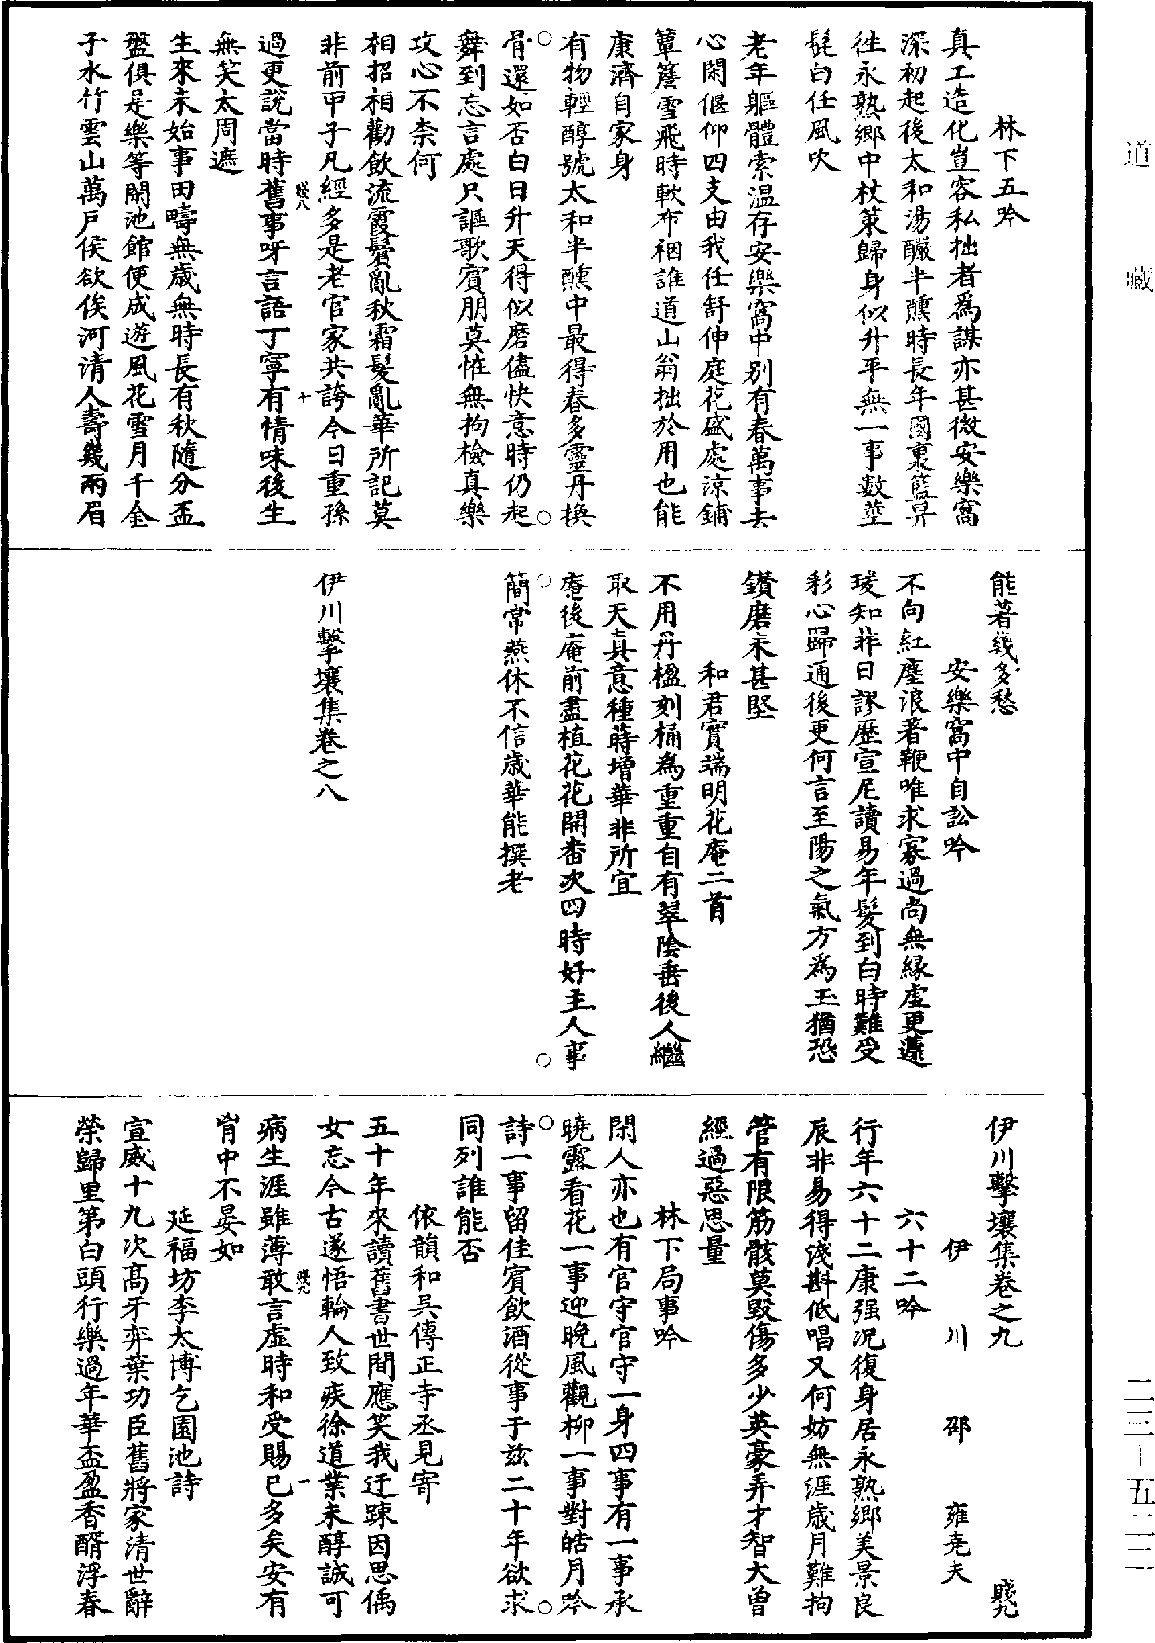 道藏
林下五吟
真工造化豈容私拙者為謀亦甚微安樂窩
深初起後太和湯釅半醺時長年國裏籃舁
往永熟鄉中杖策歸身似升平無一事數莖
髭白任風吹
老年軀體索温存安樂窩中別有春萬事去
心閑偃仰四支由我任舒伸庭花盛處涼鋪
簟簷雪飛時軟布裀誰道山翁拙於用也能
康濟自家身
有物輕醇號太和半醺中最得春多靈丹換
骨還如否白日升天得似麽儘快意時仍起
舞到忘言處只謳歌賓朋莫恠無拘檢真樂
攻心不柰何
相招相勸飲流霞鬢亂秋霜髮亂華所記莫
非前甲子凡經多是老官家共誇今日重孫
過更說當時舊事呀言語丁寧有情味後生
賤八
十
無笑太周遮
生來未始事田疇無歲無時長有秋隨分盃
盤俱是樂等閑池館便成遊風花雪月千金
子水竹雲山萬戶侯欲俟河清人壽幾兩眉
能著幾多愁
安樂窩中自訟吟
不向紅塵浪著鞭唯求寡過尚無縁虛更蘧
瑗知非日謬歷宣尼讀易年髮到白時難受
彩心歸通後更何言至陽之氣方為玉猶恐
鑽磨未甚堅
和君實端明花庵二首
不用丹楹刻桷為重重自有翠陰垂後人繼
取天真意種蒔增華非所宜
庵後庵前盡植花花開番次四時好主人事
簡常燕休不信歲華能撰老
伊川擊壤集卷之八
伊川擊壤集卷之九
賤九
伊川邵雍堯夫
六十二吟
行年六十二康强況復身居永熟鄉美景良
辰非易得淺斟低唱又何妨無涯歲月難拘
管有限筋骸莫毀傷多少英豪弄才智大曾
經過惡思量
林下局事吟
閑人亦也有官守官守一身四事有一事承
曉露看花一事迎晚風觀柳一事對皓月吟
詩一事留佳賓飲酒從事于玆二十年欲求
同列誰能否
依韻和吳傳正寺丞見寄
五十年來讀舊書世間應笑我迂踈因思偊
女忘今古遂悟輪人致疾徐道業未醇誠可
病生涯雖薄敢言虛時和受賜已多矣安有
賤九
一
胷中不晏如
延福坊李太博乞園池詩
宣威十九次高牙弈葉功臣舊將家清世辭
榮歸里第白頭行樂過年華盃盈香醑浮春
二三—五二二